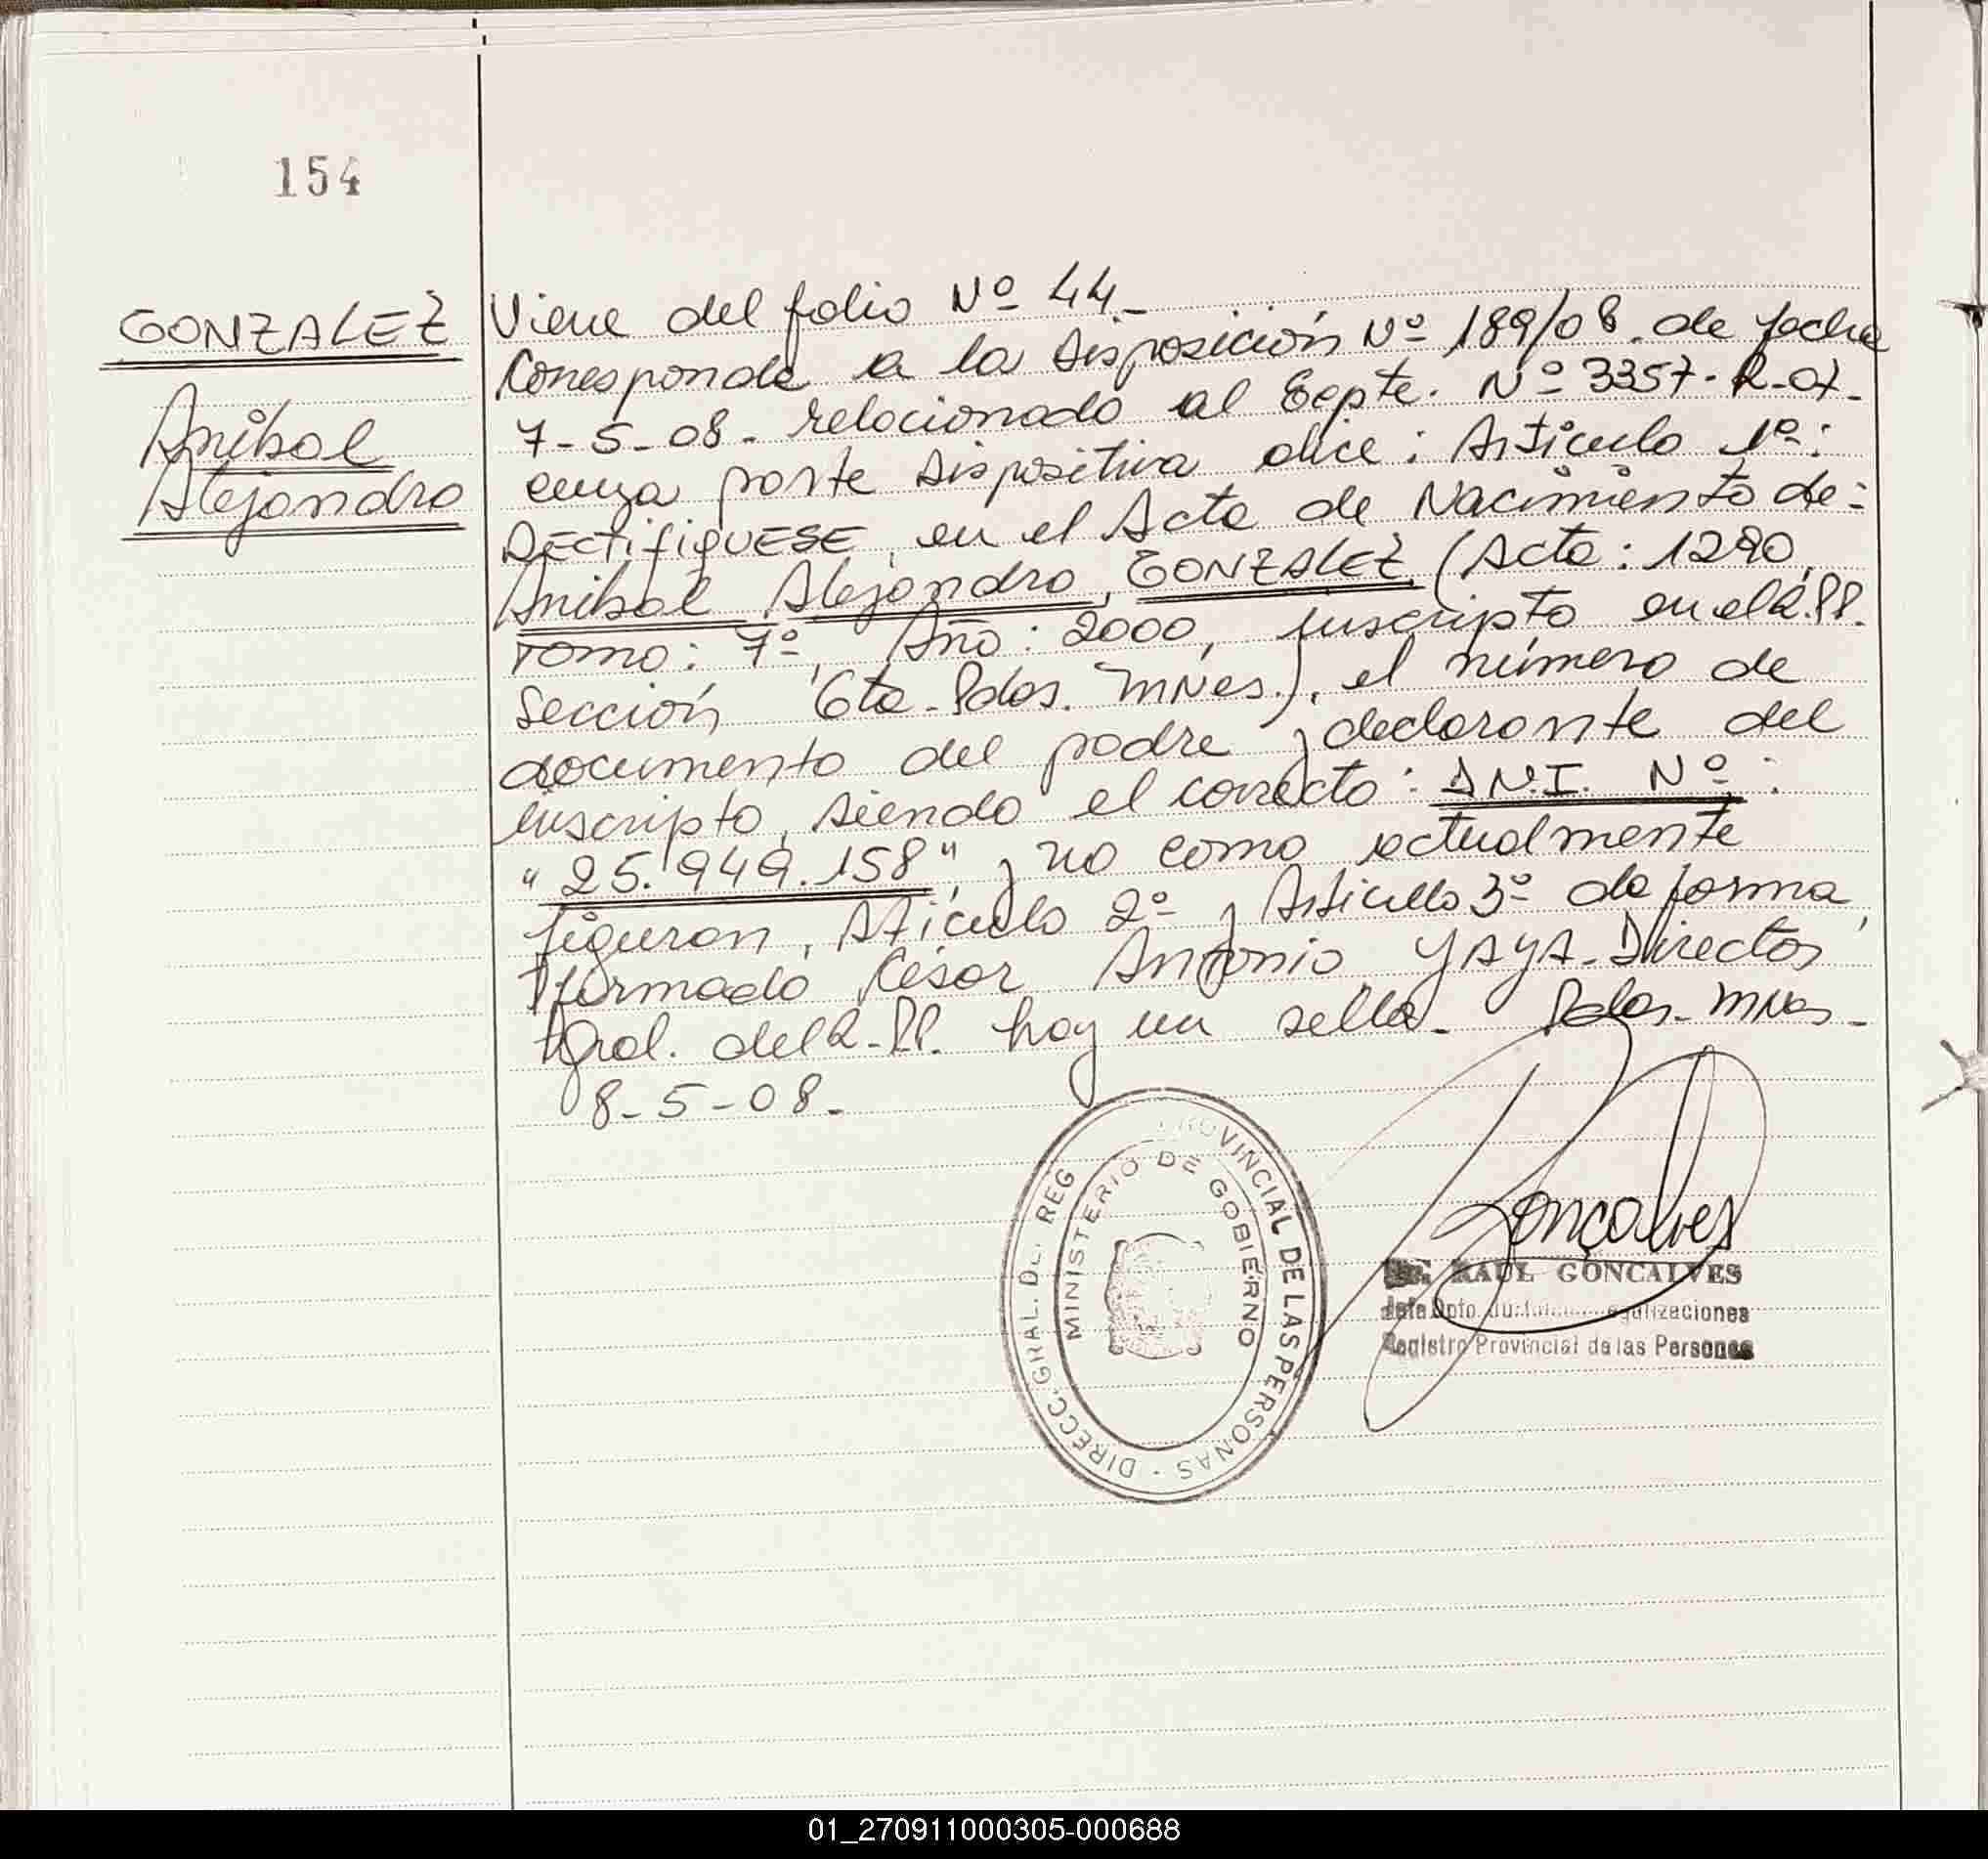 154
GONZALEZ
Anibal
Alejandro
Viene del folio Nº 44.-
Corresponde a la Disposición Nº 189/08. de fecha
7-5-08- relacionado al Expte. Nº 3357-R-07-
cuya parte Dispositiva dice: Artículo 1º:
RECTifiqUESE, en el Acta de Nacimiento de:
Anibal Alejandro, GONZALEZ (Acta: 1290,
Tomo: 7º, Año: 2000, inscripto en el R.PP.
Sección 6ta- Pdas. MNes.), el número de
documento del padre y declarante del
inscripto, siendo el correcto: D.N.I. Nº:
"25.949.158", y no como actualmente
figuran, Atículo 2º y Artículo 3º de forma,
firmado César Antonio YAYA- Director
Gral. del R.PP. hay un sello- Pdas- MNes-
8-5-08-
DIRECC. GRAL. DEL REG PROVINCIAL DE LAS PERSONAS -
MINISTERIO DE GOBIERNO
Gonçalves
RAUL GONCALVES
Jefe Dpto.
Registro Provincial de las Personas
01_270911000305-000688